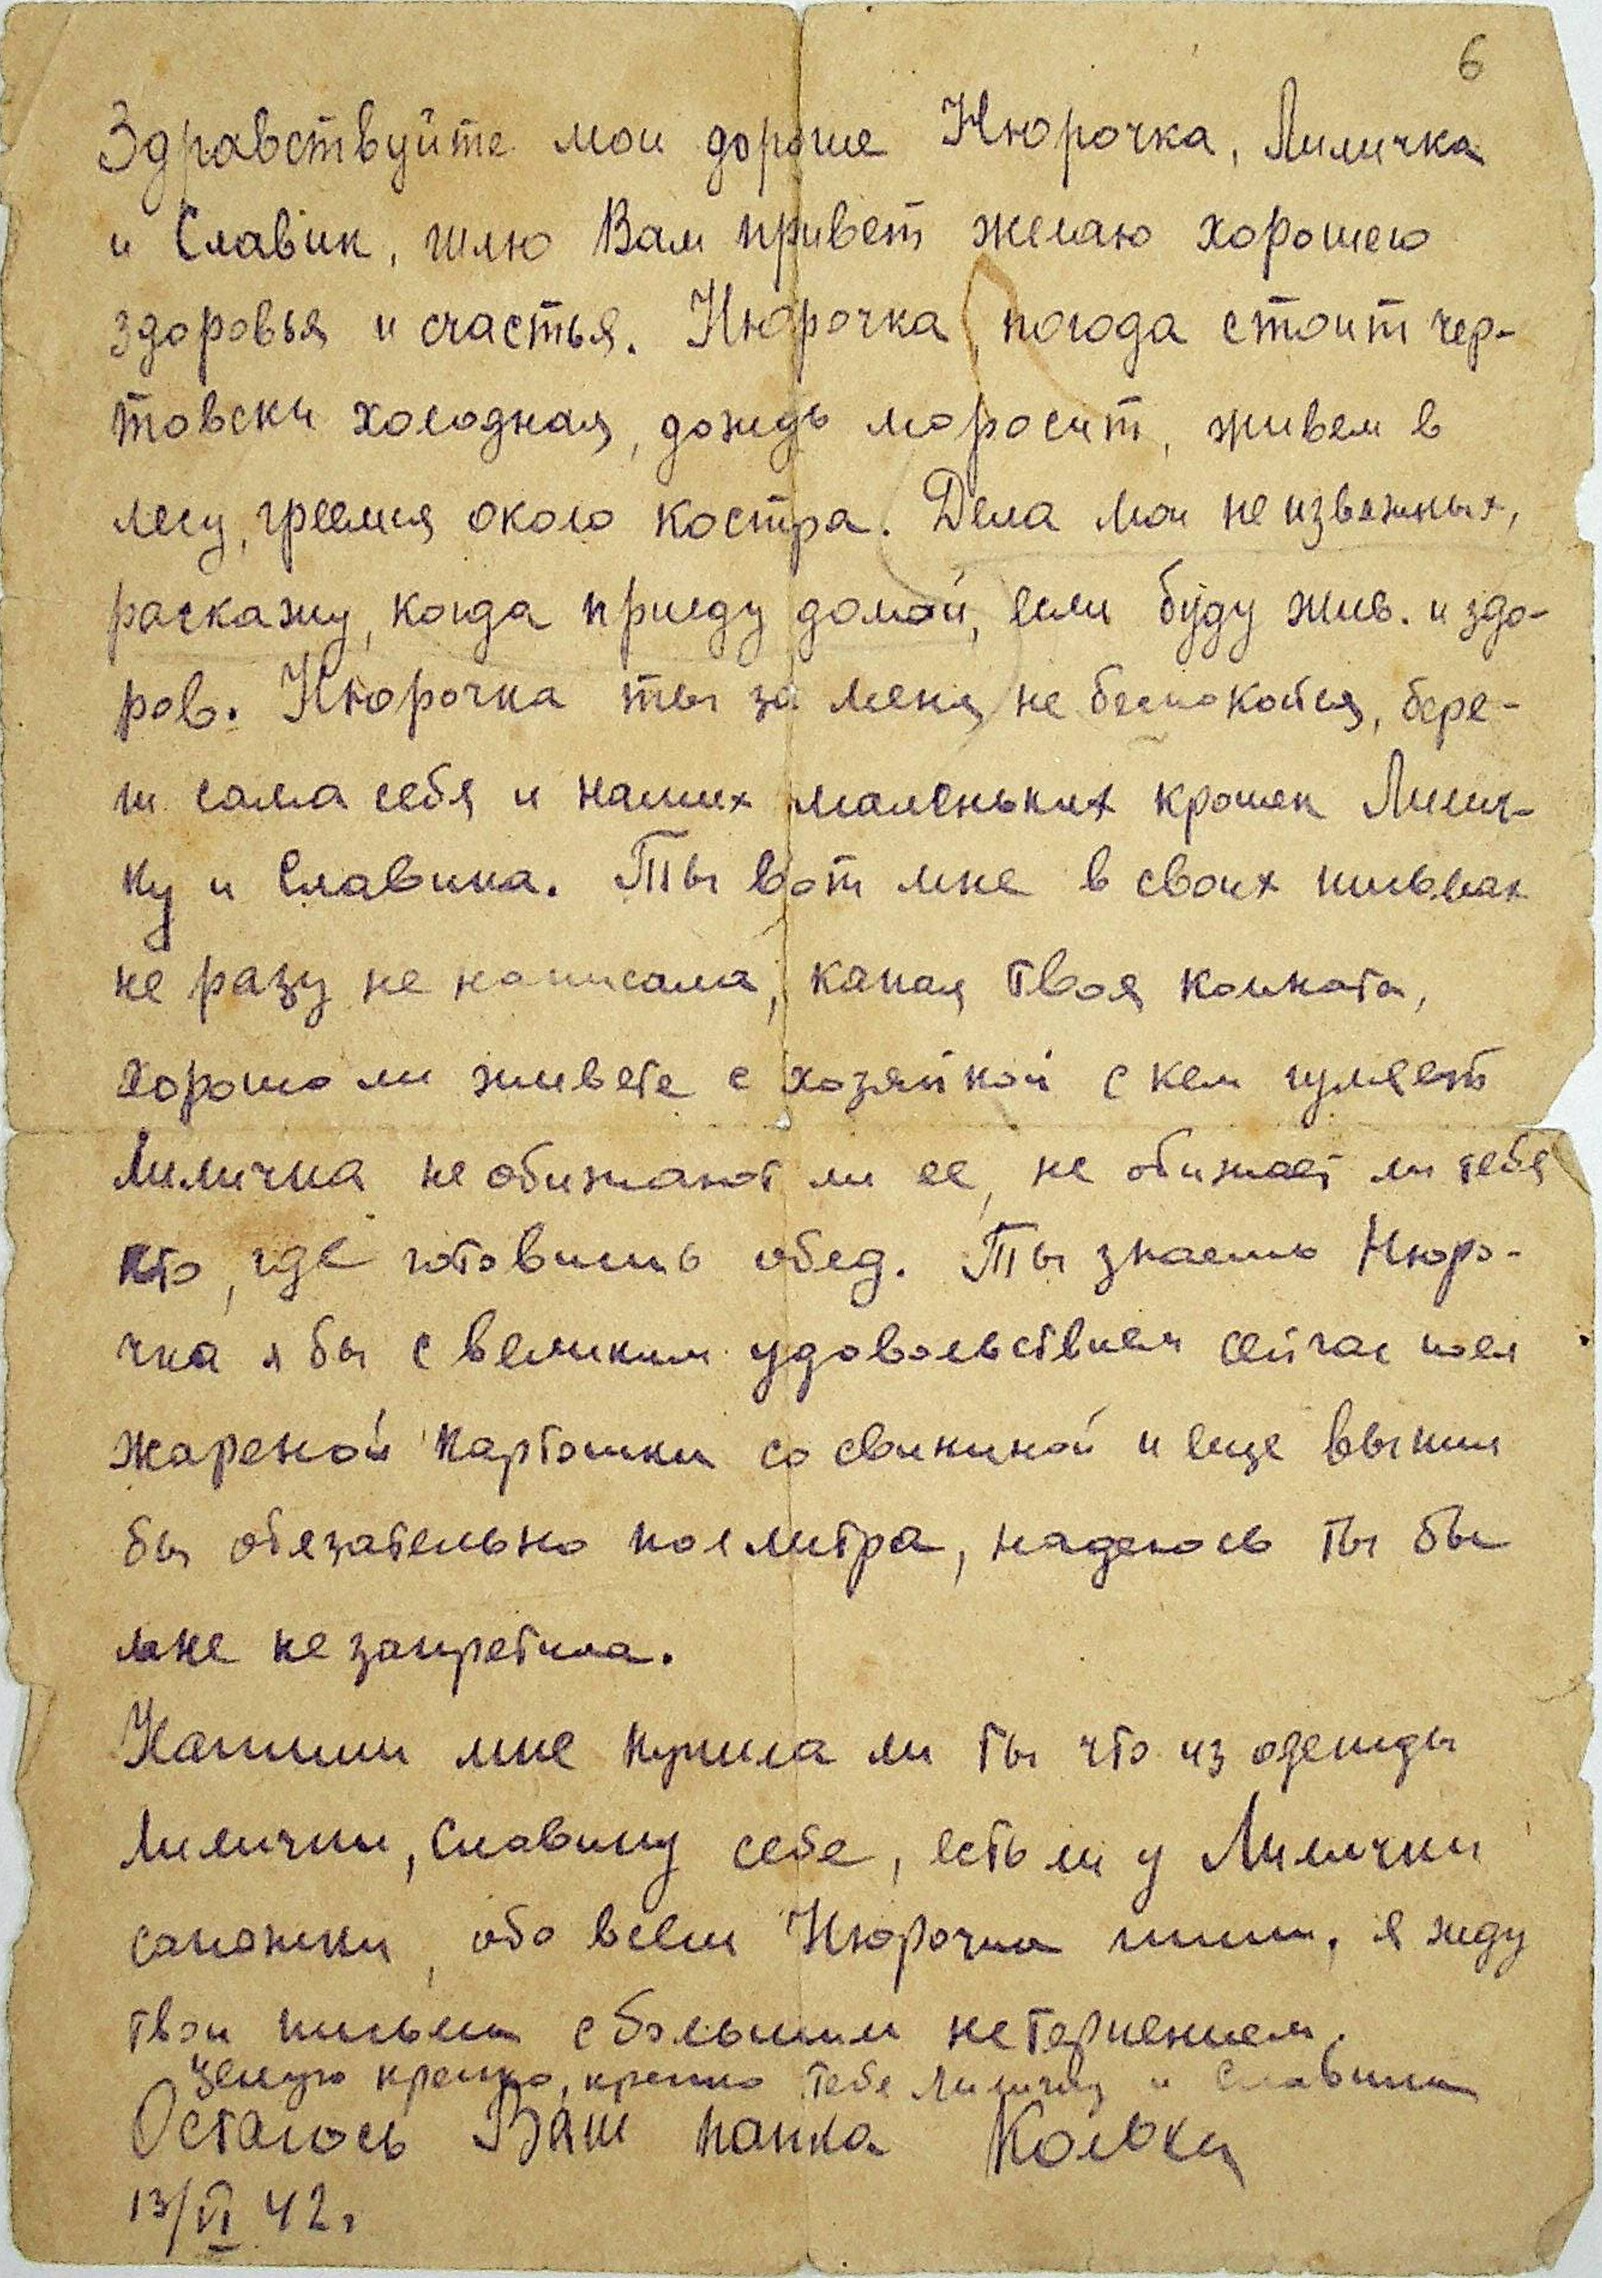 6
Здравствуйте мои дорогие Нюрочка, Лиличка
и Славик, шлю Вам привет желаю хорошего
здоровья и счастья. Нюрочка, погода стоит чер-
товски холодная, дождь моросит, живем в
лесу, греемся около костра. Дела мои неизважных,
раскажу, когда приеду домой, если буду жив. и здо-
ров. Нюрочка ты за меня не беспокойся, бере-
ги сама себя и наших маленьких крошек Лилич-
ку и Славика. Ты вот мне в своих письмах
не разу не написала, какая твоя комната,
хорошо ли живете с хозяйкой с кем гуляет
Лиличка не обижают ли ее, не обижает ли тебя
кто, где готовишь обед. Ты знаешь Нюро-
чка я бы с великим удовольствием сейчас поел
жареной картошки со свининой и еще выпил
бы обязательно поллитра, надеюсь ты бы
мне не запретила.
Напиши мне купила ли ты что из одежды
Лилички, Славику себе, есть ли у Лилички
сапожки, обо всем Нюрочка пиши, я жду
твои письма с большим нетерпением.
Целую крепко, крепко тебя Лиличку и Славика
Остаюсь Ваш папка Колька
13/VI 42г.